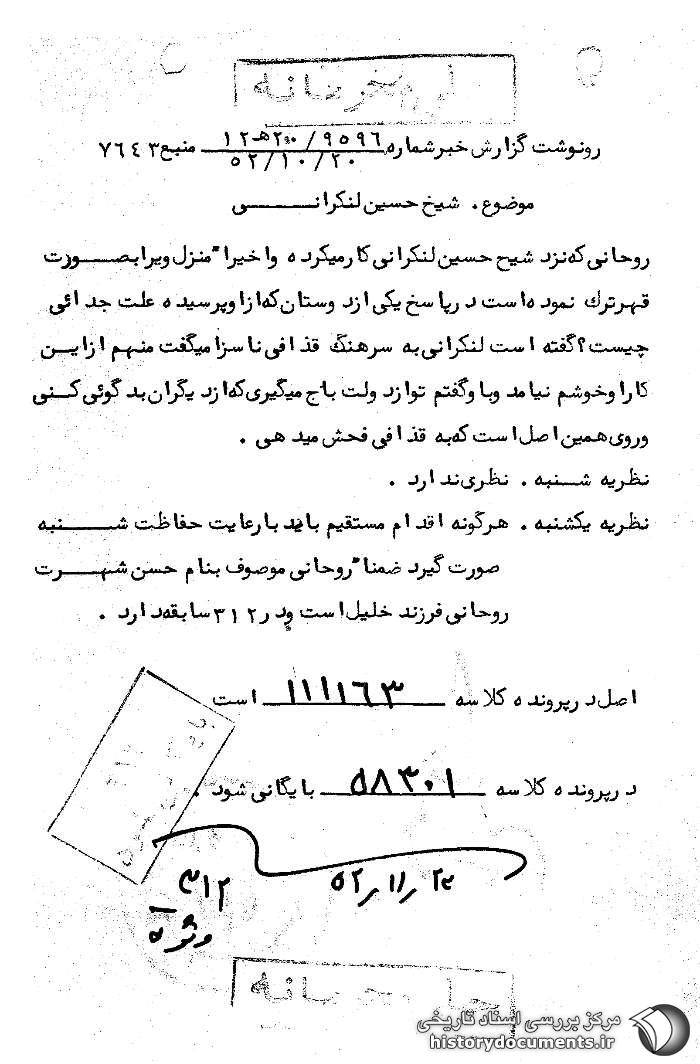 رونوشت گزارش خبرشماره ۹۵۹۶/ ۲۰هـ۱۲ منبع ۷۶۴۳
۵۲/۱۰/۲۰
موضوع . شیخ حسین لنکرانی
روحانی که نزد شیخ حسین لنکرانی کار میکرده واخیرا" منزل ویرا بصورت
قهرترك نموده است در پاسخ یکی از دوستان که از او پرسیده علت جدائی
چیست؟ گفته است لنکرانی به سرهنگ قذافی ناسزا میگفت منهم از این
کار او خوشم نیامد وباو گفتم تو از دولت باج میگیری که از دیگران بدگوئی کنی
وروی همین اصل است که به قذافی فحش میدهی .
نظریه شنبه . نظری ندارد .
نظریه یکشنبه . هرگونه اقدام مستقیم باید با رعایت حفاظت شنبه
صورت گیرد ضمنا" روحانی موصوف بنام حسن شهرت
روحانی فرزند خلیل است و در ۳۱۲ سابقه دارد .
اصل در پرونده کلاسه ۱۱۱۱۶۳ است
در پرونده کلاسه ۵۸۳۰۱ بایگانی شود .
۵۲/۱۱/۲۳
۳۱۲
ویژه
مرکز بررسی اسناد تاریخی
historydocuments.ir